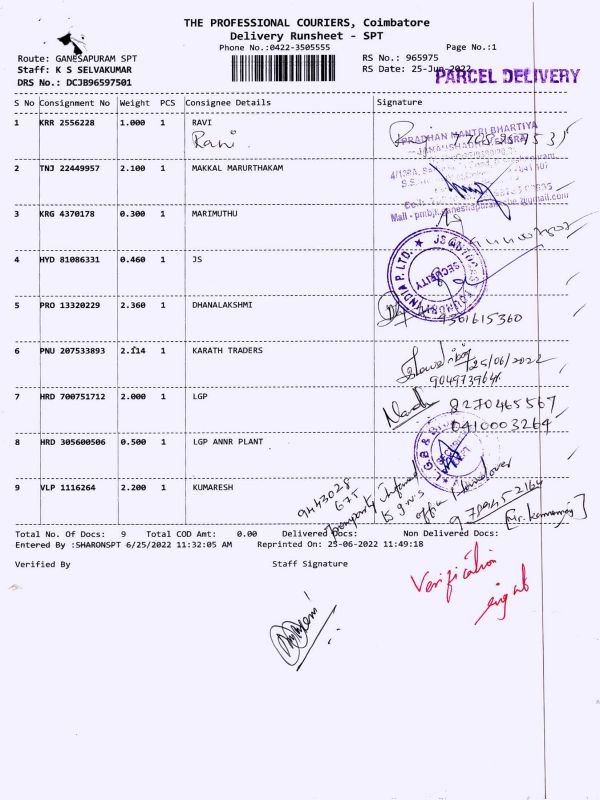 THE PROFESSIONAL COURIERS, Coimbatore
Delivery Runsheet - SPT
Phone No.:0422-3505555
Page No.:1
Route: GANESAPURAM SPT
RS No.: 965975
Staff: K S SELVAKUMAR
RS Date: 25-Jun-2022
DRS No.: DCJB96597501
PARCEL DELIVERY
S No Consignment No Weight PCS Consignee Details Signature
1 KRR 2556228 1.000 1 RAVI
Ravi
PRADHAN MANTRI BHARTIYA
JANAUSHADHI KENDRA
2 TNJ 22449957 2.100 1 MAKKAL MARURTHAKAM
3 KRG 4370178 0.300 1 MARIMUTHU
4 HYD 81086331 0.460 1 JS
SECURITY
5 PRO 13320229 2.360 1 DHANALAKSHMI
9361615360
6 PNU 207533893 2.114 1 KARATH TRADERS
25/06/2022
9049739641
7 HRD 700751712 2.000 1 LGP
8270465567
8 HRD 305600506 0.500 1 LGP ANNR PLANT
0410003264
9 VLP 1116264 2.200 1 KUMARESH
9443028
675
9789452164
Total No. Of Docs: 9 Total COD Amt: 0.00 Delivered Docs: Non Delivered Docs:
Entered By :SHARONSPT 6/25/2022 11:32:05 AM Reprinted On: 25-06-2022 11:49:18
Verified By Staff Signature
Verification